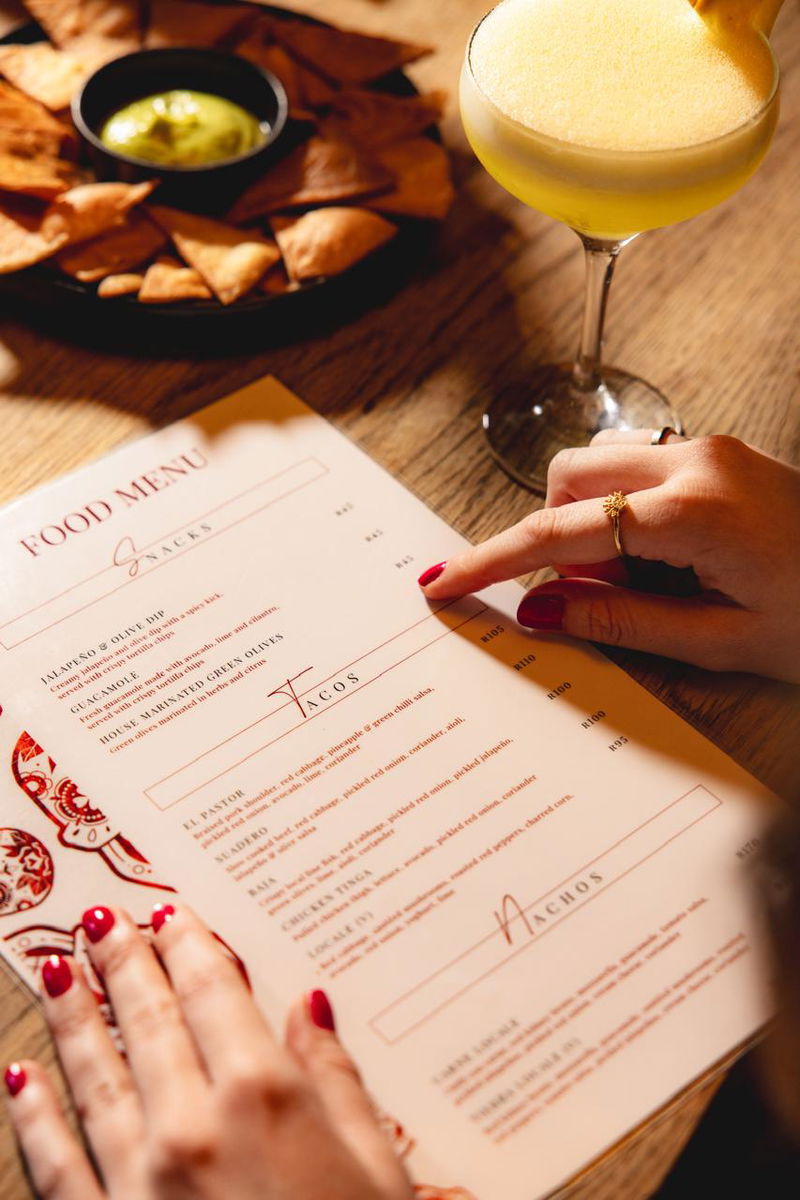 FOOD MENU
SNACKS
JALAPEÑO & OLIVE DIP R45
Creamy jalapeno and olive dip with a spicy kick,
served with crispy tortilla chips
GUACAMOLE R45
Fresh guacamole made with avocado, lime and cilantro,
served with crispy tortilla chips
HOUSE MARINATED GREEN OLIVES R45
Green olives marinated in herbs and citrus
TACOS
EL PASTOR R105
Braised pork shoulder, red cabbage, pineapple & green chilli salsa,
pickled red onion, avocado, lime, coriander
SUADERO R110
Slow cooked beef, red cabbage, pickled red onion, coriander, aioli,
jalapeño & olive salsa
BAJA R100
Crispy local line fish, red cabbage, pickled red onion, pickled jalapeño,
green olives, lime, aioli, coriander
CHICKEN TINGA R100
Pulled chicken thigh, lettuce, avocado, pickled red onion, coriander
LOCALE (V) R95
Red cabbage, sautéed mushrooms, roasted red peppers, charred corn,
avocado, red onion, yoghurt, lime
NACHOS
CARNE LOCALE